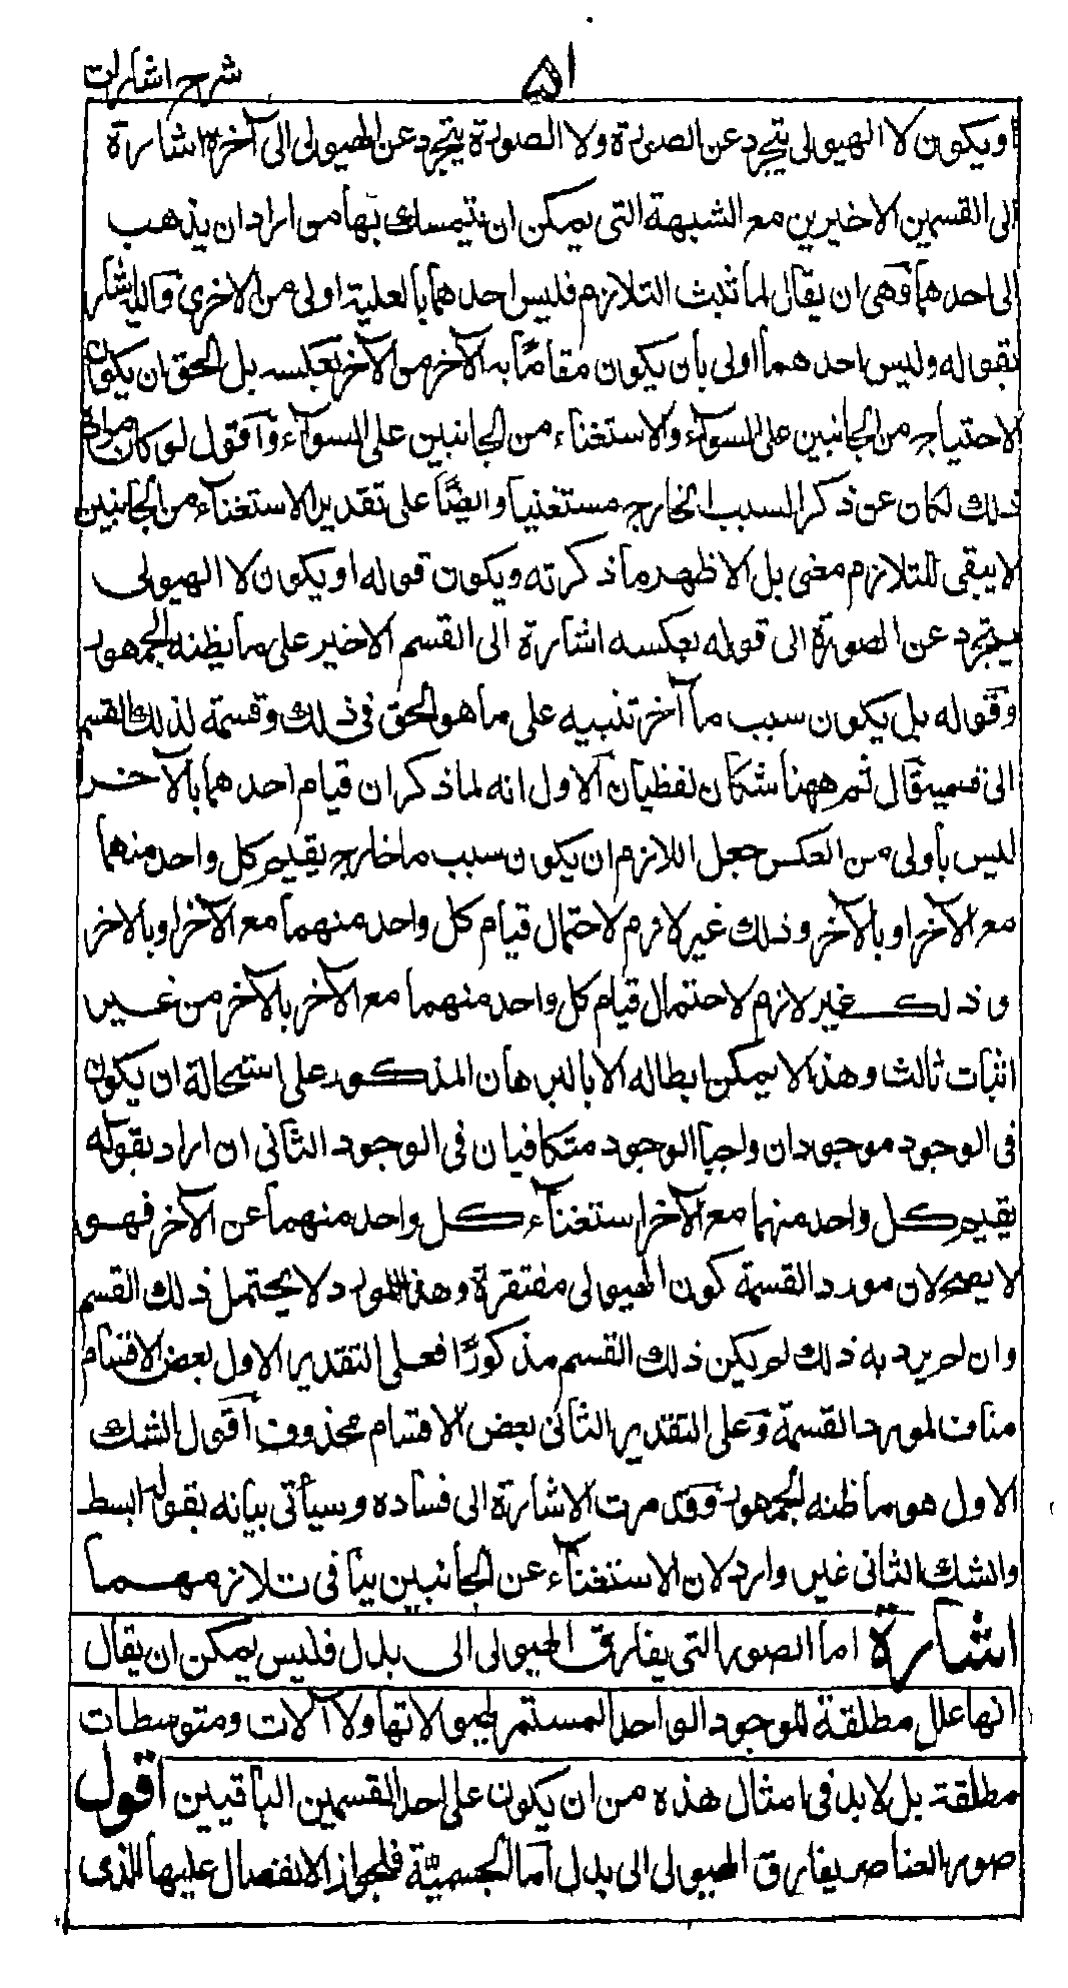 ٥١
شرح اشارات
او يكون لا الهيولى يتجرد عن الصورة ولا الصورة يتجرد عن الهيولى الى آخره اشارة
الى القسمين الاخيرين مع الشبهة التى يمكن ان يتمسك بها من اراد ان يذهب
الى احدهما فهى ان يقال لما ثبت التلازم فليس احدهما بالعلية اولى من الاخرى واليه اشار
بقوله وليس احدهما اولى بأن يكون مقاما به الآخر من الآخر بعكسه بل الحق ان يكون
الاحتياج من الجانبين على السوآء والاستغناء من الجانبين على السوآء وآقول لو كان مراده
ذلك لكان عن ذكر السبب الخارج مستغنيا وايضًا على تقدير الاستغنآء من الجانبين
لا يبقى للتلازم معنى بل الاظهر ما ذكرته ويكون قوله او يكون لا الهيولى
يتجرد عن الصورة الى قوله بعكسه اشارة الى القسم الاخير على ما يظنه الجمهور
وقوله بل يكون سبب ما آخر تنبيه على ما هو الحق فى ذلك وقسمة لذلك القسم
الى قسمين قال ثم ههنا شكان لفظيان آلاول انه لما ذكر ان قيام احدهما بالآخر
ليس بأولى من العكس جعل اللازم ان يكون سبب ما خارج يقيم كل واحد منهما
مع الآخر او بالآخر وذلك غير لازم لاحتمال قيام كل واحد منهما مع الآخر او بالاخر
وذلك غير لازم لاحتمال قيام كل واحد منهما مع الآخر بالآخر من غير
اثبات ثالث وهذا لا يمكن ابطاله الا بالبرهان المذكور على استحالة ان يكون
فى الوجود موجودان واجبا الوجود متكافيان فى الوجود الثانى ان اراد بقوله
يقيم كل واحد منهما مع الآخر استغنآء كل واحد منهما عن الآخر فهو
لا يصح لان مورد القسمة كون الهيولى مفتقرة وهذا المورد لا يحتمل ذلك القسم
وان لم يرد به ذلك لم يكن ذلك القسم مذكورًا فعلى التقدير الاول بعض الاقسام
مناف لمورد القسمة وعلى التقدير الثانى بعض الاقسام محذوف آقول الشك
الاول هو ما ظنه الجمهور وقد مرت الاشارة الى فساده وسيأتى بيانه بقول ابسط
والشك الثانى غير وارد لان الاستغنآء عن الجانبين ينافى تلازمهما
اشارة اما الصور التى يفارق الهيولى الى بدل فليس يمكن ان يقال
انها علل مطلقة للموجود الواحد المستمر لهيولاتها ولا آلات ومتوسطات
مطلقة بل لا بد فى امثال هذه من ان يكون على احد القسمين الباقيين اقول
صور العناصر يفارق الهيولى الى بدل اما الجسمية فلجواز الانفصال عليها الذى